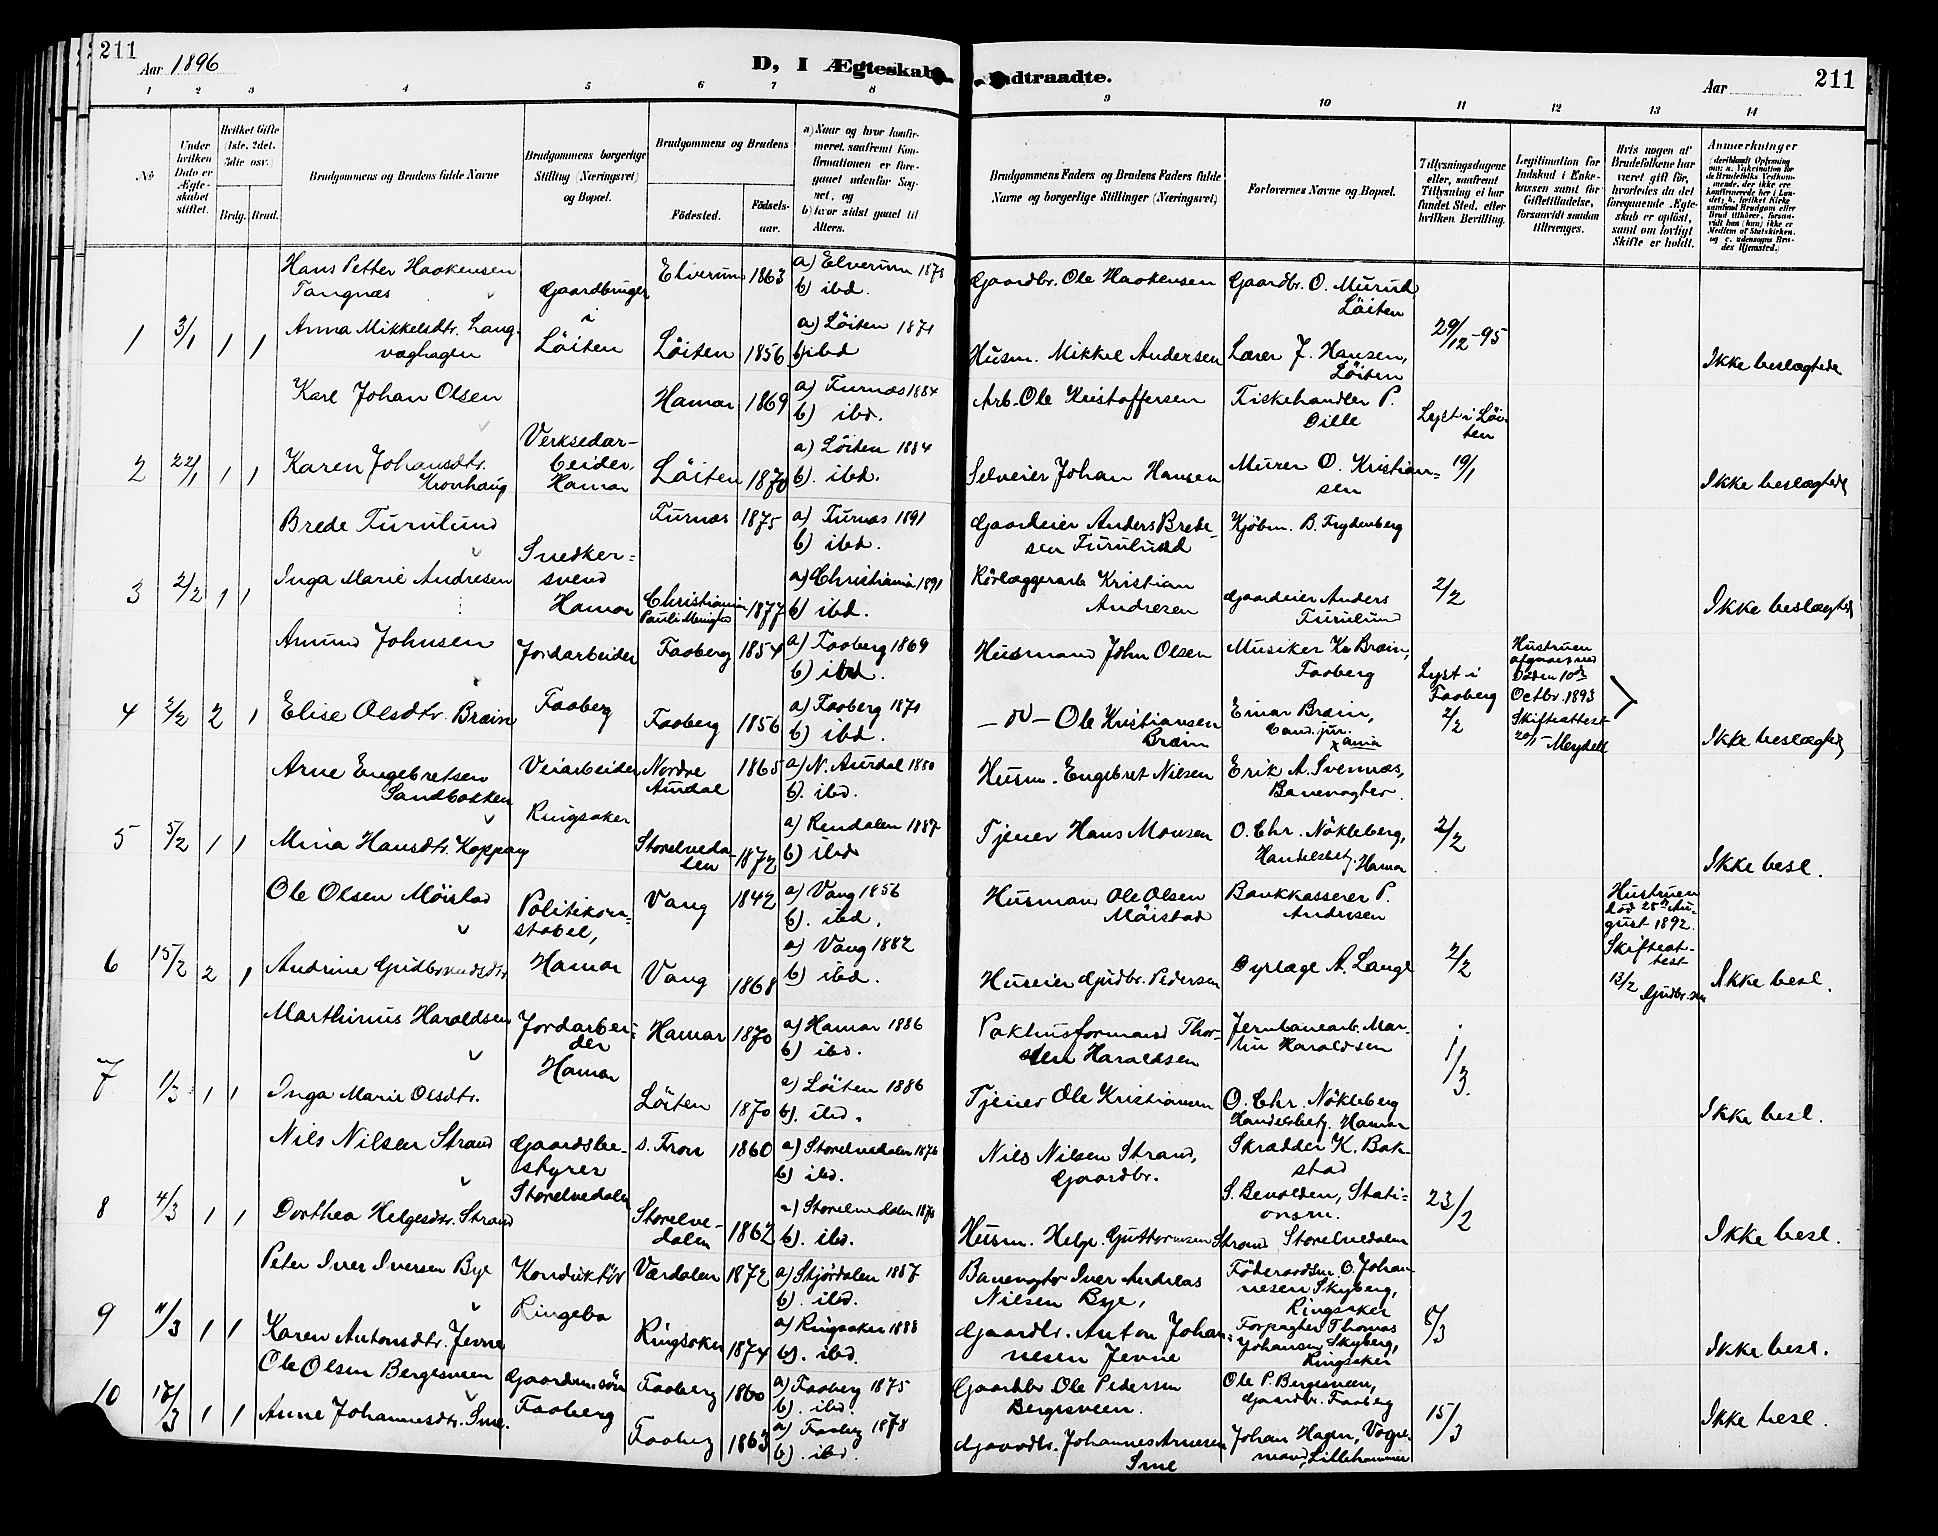 211
Aar 1896
D, I Ægteskab Indtraadte.
Aar
211
1 2 3 4 5 6 7 8 9 10 11 12 13 14
No
Under hvilken Dato er Ægteskabet stiftet.
Hvilket Gifte (1ste, 2det, 3die osv.)
Brdg. Brud.
Brudgommens og Brudens fulde Navne
Brudgommens borgerlige Stilling (Næringsvei) og Bopæl.
Brudgommens og Brudens
Födested.
Födselsaar.
a) Naar og hvor konfirmeret, saafremt Konfirmationen er foregaaet udenfor Sognet, og
b) hvor sidst gaaet til Alters.
Brudgommens Faders og Brudens Faders fulde Navne og borgerlige Stillinger (Næringsvei)
Forlovernes Navne og Bopæl.
Tillysningsdagene eller, saafremt Tillysning ei har fundet Sted, efter hvilken Bevilling.
Legitimation for Indskud i Enkekassen samt for Giftetilladelse, forsaavidt saadan tiltrænges.
Hvis nogen af Brudefolkene har været gift før, hvorledes da det foregaaende Ægteskab er oplöst, samt om lovligt Skifte er holdt.
Anmærkninger
1 3/1 1 1
Hans Petter Haakensen
Tangnæs
Gaardbruger
i
Löiten
Elverum 1863
a) Elverum 1878
b) ibd.
Gaardbr. Ole Haakensen
Gaardbr. O. Murud
Löiten
29/12-95
Anna Mikkelsdtr. Lang-
væghagen
Löiten 1856
a) Löiten 1871
b) ibd
Husm. Mikkel Andersen
Lærer J. Hansen,
Löiten
Ikke beslægtede
2 22/1 1 1
Karl Johan Olsen
Verksedar-
beider
Hamar
Hamar 1869
a) Furnæs 1884
b) ibd.
Arb. Ole Kristoffersen
Fiskehandler P.
Dille
Lyst i Löi-
ten
19/1
Karen Johansdtr.
Kronhaug
Löiten 1870
a) Löiten 1884
b). ibd.
Selveier Johan Hansen
Murer O. Kristian-
sen
Ikke beslægtede
3 2/2 1 1
Brede Furulund
Snedker-
svend
Hamar
Furnæs 1875
a) Furnæs 1891
b) ibd.
Gaardeier Anders Brede-
sen Furulund
Kjöbm. B. Frydenberg
2/2
Inga Marie Andresen
Christiania
1877
a) Christiania 1891
b) ibd.
Rörlæggerarb Kristian
Andresen
Gaardeier Anders
Furulund
Ikke beslægtede
4 2/2 2 1
Amund Johnsen
Jordarbeider
Faaberg
Faaberg 1854
a) Faaberg 1869
b) ibd.
Husmand John Olsen
Musiker K. Bræin,
Faaberg
Lyst i
Faaberg
2/2
Hustruen
afgaaet ved
Döden 10de
Octbr. 1893
Skifteattest
20/1 Meydell
Elise Olsdtr. Bræin
Faaberg 1856
a) Faaberg 1871
b) ibd.
- do - Ole Kristiansen
Bræin
Einar Bræin,
Cand. jur.
Xania
Ikke beslægtede
5 5/2 1 1
Arne Engebretsen
Sandbakken
Veiarbeider
Ringsaker
Nordre
Aurdal
1865
a) N. Aurdal 1880
b). ibd.
Husm. Engebret Nilsen
Erik A. Svennæs,
Banevogter.
2/2
Mina Hansdtr. Koppang
Storelveda-
len
1872
a) Rendalen 1887
b) ibd
Tjener Hans Monsen
O. Chr. Nökleberg,
Handelsbetj. Hamar
Ikke besl.
6 15/2 2 1
Ole Olsen Möistad
Politikon-
stabel,
Hamar
Vang 1842
a) Vang 1856
b). ibd.
Husman Ole Olsen
Möistad
Bankkasserer P.
Andersen
2/2
Hustruen
död 25de Au-
gust 1892
Skifteat-
test
13/2 Gudbr.sen
Andrine Gudbrandsdtr
Vang 1868
a) Vang 1882
b) ibd.
Huseier Gudbr. Pedersen
Dyrlæge A. Lange
Ikke besl.
7 1/3 1 1
Marthinus Haraldsen
Jordarbei-
der
Hamar
Hamar 1870
a) Hamar 1886
b) ibd.
Pakhusformand Thor-
sten Haraldsen
Jernbanearb. Mar-
tin Haraldsen
1/3.
Inga Marie Olsdtr.
Löiten 1870
a) Löiten 1886
b). ibd.
Tjener Ole Kristiansen
O. Chr. Nökleberg
Handelsbetj. Hamar
Ikke besl.
8 4/3 1 1
Nils Nilsen Strand
Gaardsbe-
styrer
Storelvedalen
S. Fron 1860
a) Storelvedalen 1876
b) ibd.
Nils Nilsen Strand,
Gaardbr.
Skrædder K. Bak-
stad
23/2
Dorthea Helgesdtr. Strand
Storelve-
dalen
1862
a) Storelvedalen
b). ibd.
Husm. Helge Guttormsen Strand
S. Benolden, Stati-
onsm.
Storelvedalen
Ikke besl.
9 11/3 1 1
Peter Iver Iversen Bye
Konduktör
Ringebo
Værdalen 1872
a) Stjördalen 1887
b). ibd.
Banevogter Iver Andreas
Nilsen Bye,
Föderaadsm. O. Johan-
nesen Skyberg,
Ringsaker
8/3
Karen Antonsdtr. Jevne
Ringsaker 1874
a) Ringsaker 1888
b). ibd.
Gaardbr. Anton Johan-
nesen Jevne
Forpagter Thomas
Johansen Skyberg,
Ringsaker
Ikke besl.
10 17/3 1 1
Ole Olsen Bergesveen
Gaardmandsön
Faaberg
Faaberg 1860
a) Faaberg 1875
b). ibd
Gaardbr Ole Pedersen
Bergesveen.
Ole P. Bergesveen,
Gaardbr. Faaberg
15/3
Anne Johannesdtr. Sme.
Faaberg 1863
a) Faaberg 1878
b). ibd.
Gaardbr. Johannes Arnesen
Sme
Johan Hagen, Vogn-
mand, Lillehammer
Ikke besl.